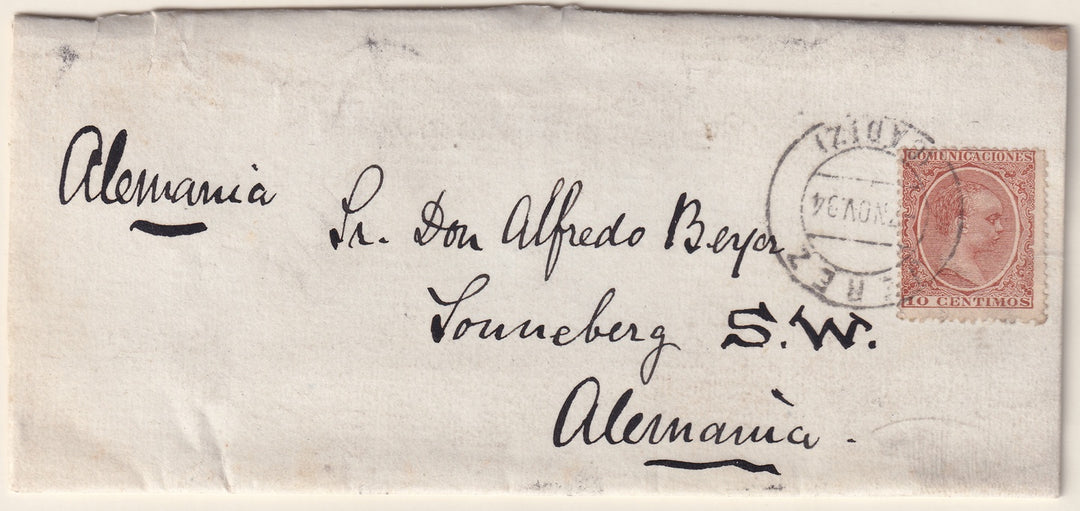 Alemania
Sr. Don Alfredo Beyer
Sonneberg S.W.
Alemania.
COMUNICACIONES
10 CENTIMOS
JEREZ
NOV.94
(CADIZ)